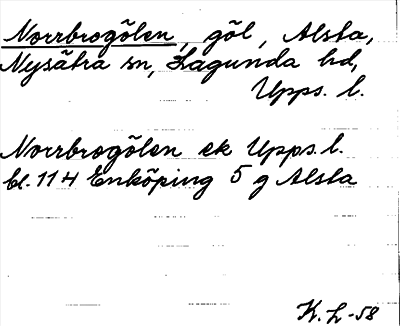 Norrbrogölen, göl, Alsta,
Nysätra sn, Lagunda hd,
Upps. l.
Norrbrogölen ek Upps. l.
bl. 114 Enköping 5 g Alsta
K. L -58